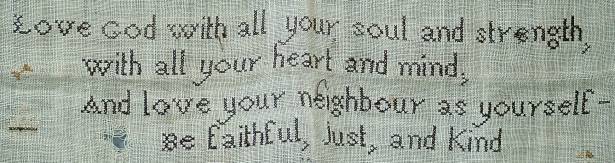 Love God with all your soul and strength,
with all your heart and mind,
And love your neighbour as yourself-
Be faithful, just, and kind